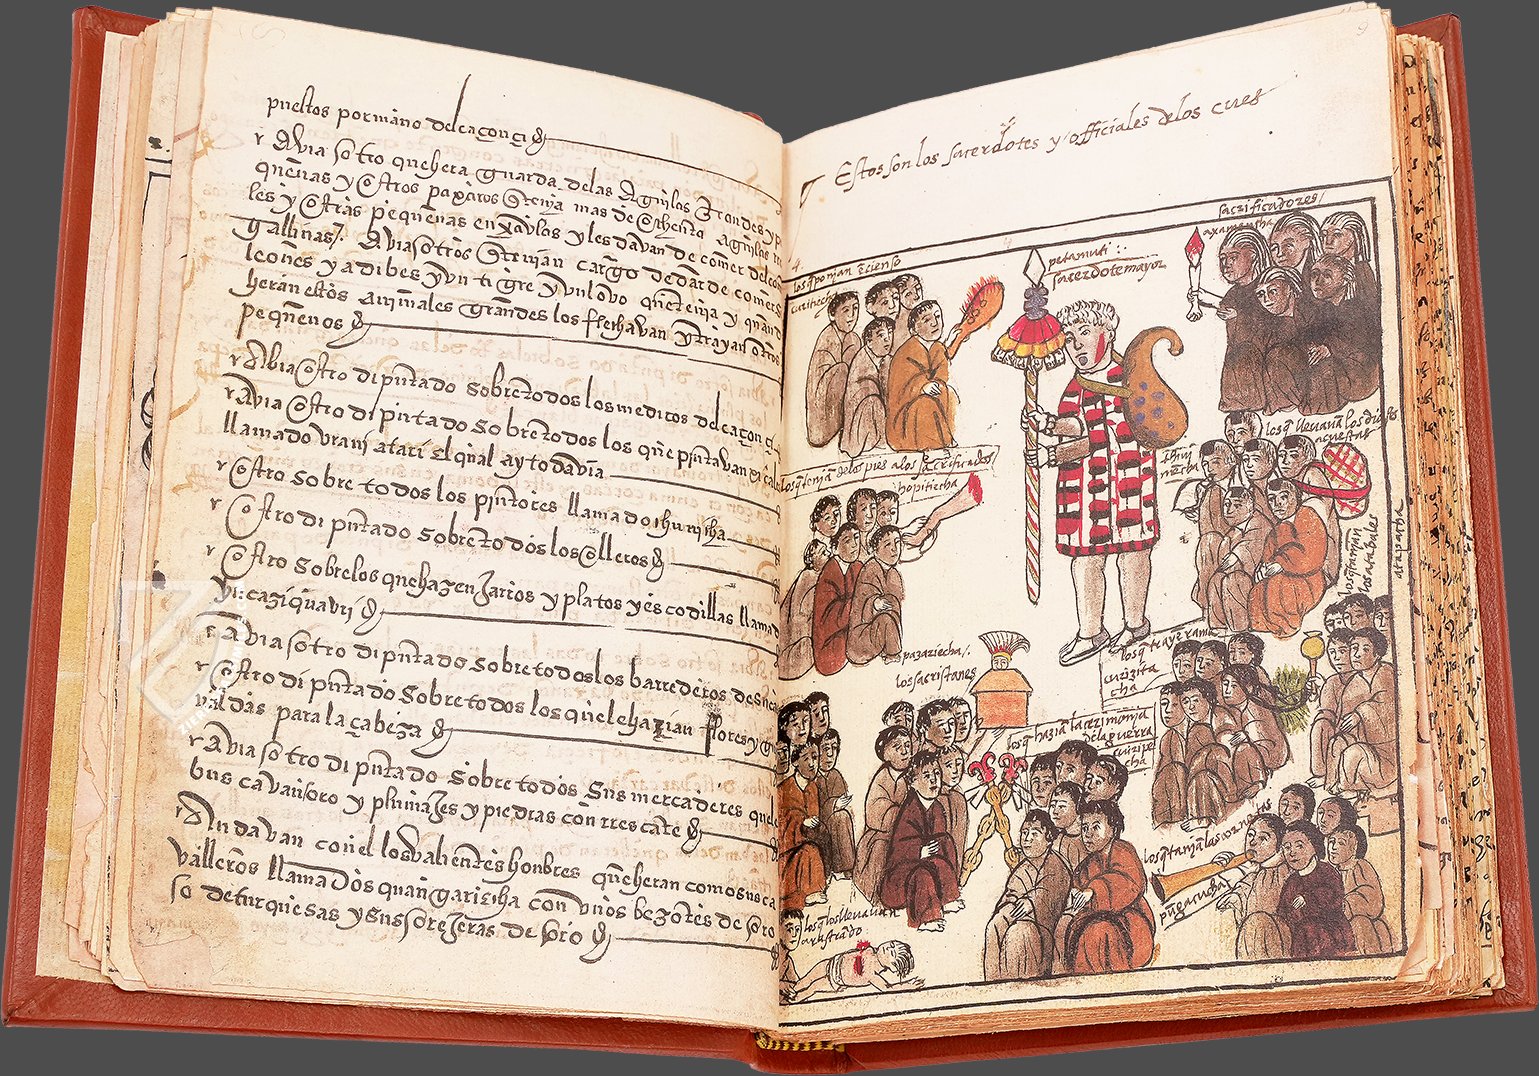 puestos por mano del caçonçi
Avia otro que hera guarda de las Aguilas grandes y p
quenas y otros paxaros q tenia mas de ochenta aguilas rea
les y otras pequenas en xaulas y les davan de comer del comũ
gallinas. Avia otros q tenian cargo de dar de comer s
leones y adibes y un tigre y un lovo que tenia y quand
heran estos animales grandes los flechavan y trayan otros
pequenos
Abia otro diputado sobre todos los medicos del caçonçi
Avia otro diputado sobre todos los que pintavan xicales
llamado vrani atari el qual ay todavia
otro sobre todos los pintores llamado chunicha
otro diputado sobre todos los olleros
otro sobre los que hazen jarros y platos y escodillas llamad
hucaziquavri
Avia otro diputado sobre todos los barrederos de su ca
otro diputado sobre todos los que le hazian flores y g
valdas para la cabeza
Avia otro diputado sobre todos sus mercaderes que le
bus cavan oro y plumajes y piedras con rrescate
Andavan con el los valientes honbres que heran como sus ca
valleros llamados quangariecha con vnos bezotes de oro
o de turquesas y sus orejeras de oro
Estos son los sacerdotes y officiales de los cues
los q ponian ençienso
curitiecha
petamuti:
sacerdote mayor
sacrificadores/
axamencha
los q llevavan los dioses
acuestas
thiui
mencha
los q tenian de los pies a los sacrificados
hopitiecha
los q tañian
los atabales
atapacha
pazaziecha/.
los sacristanes
los q trayε rama
curizita
cha
los q hazian la cerimonia
de la guerra
curipe
cha
los q tañian las cornetas
pungacucha
los q los llevavan
arrastrando